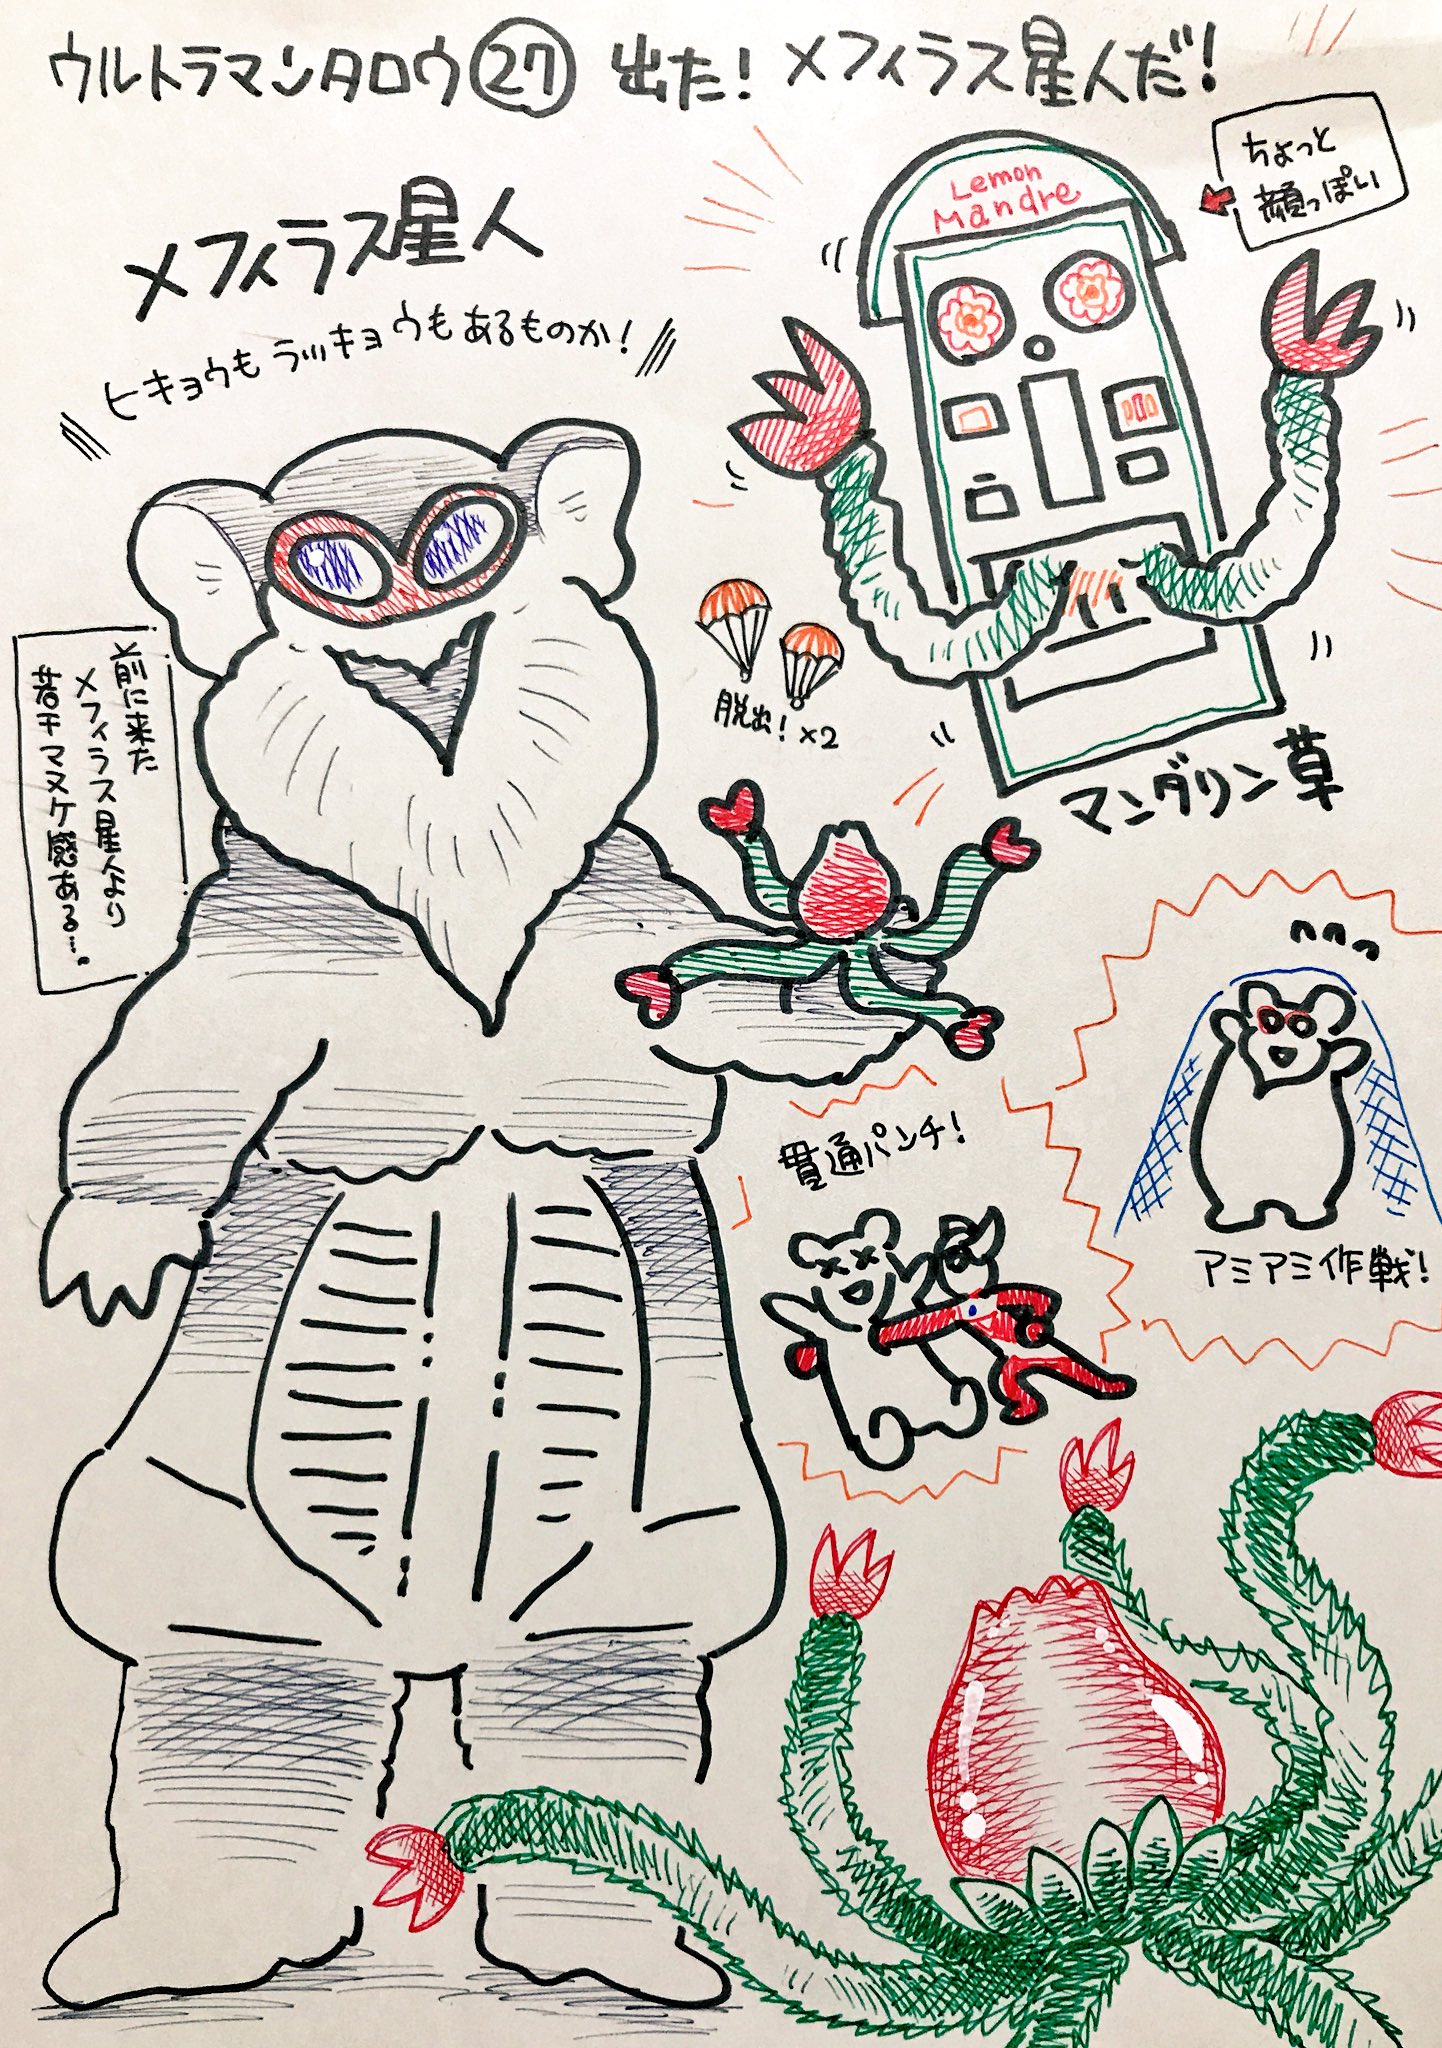 ウルトラマンタロウ㉗ 出た!メフィラス星人だ!
メフィラス星人
ヒキョウもラッキョウもあるものか!
Lemon
Mandre
ちょっと
顔っぽい
前に来た
メフィラス星人より
若干マヌケ感ある…。
脱出!×2
マンダリン草
貫通パンチ!
アミアミ作戦!